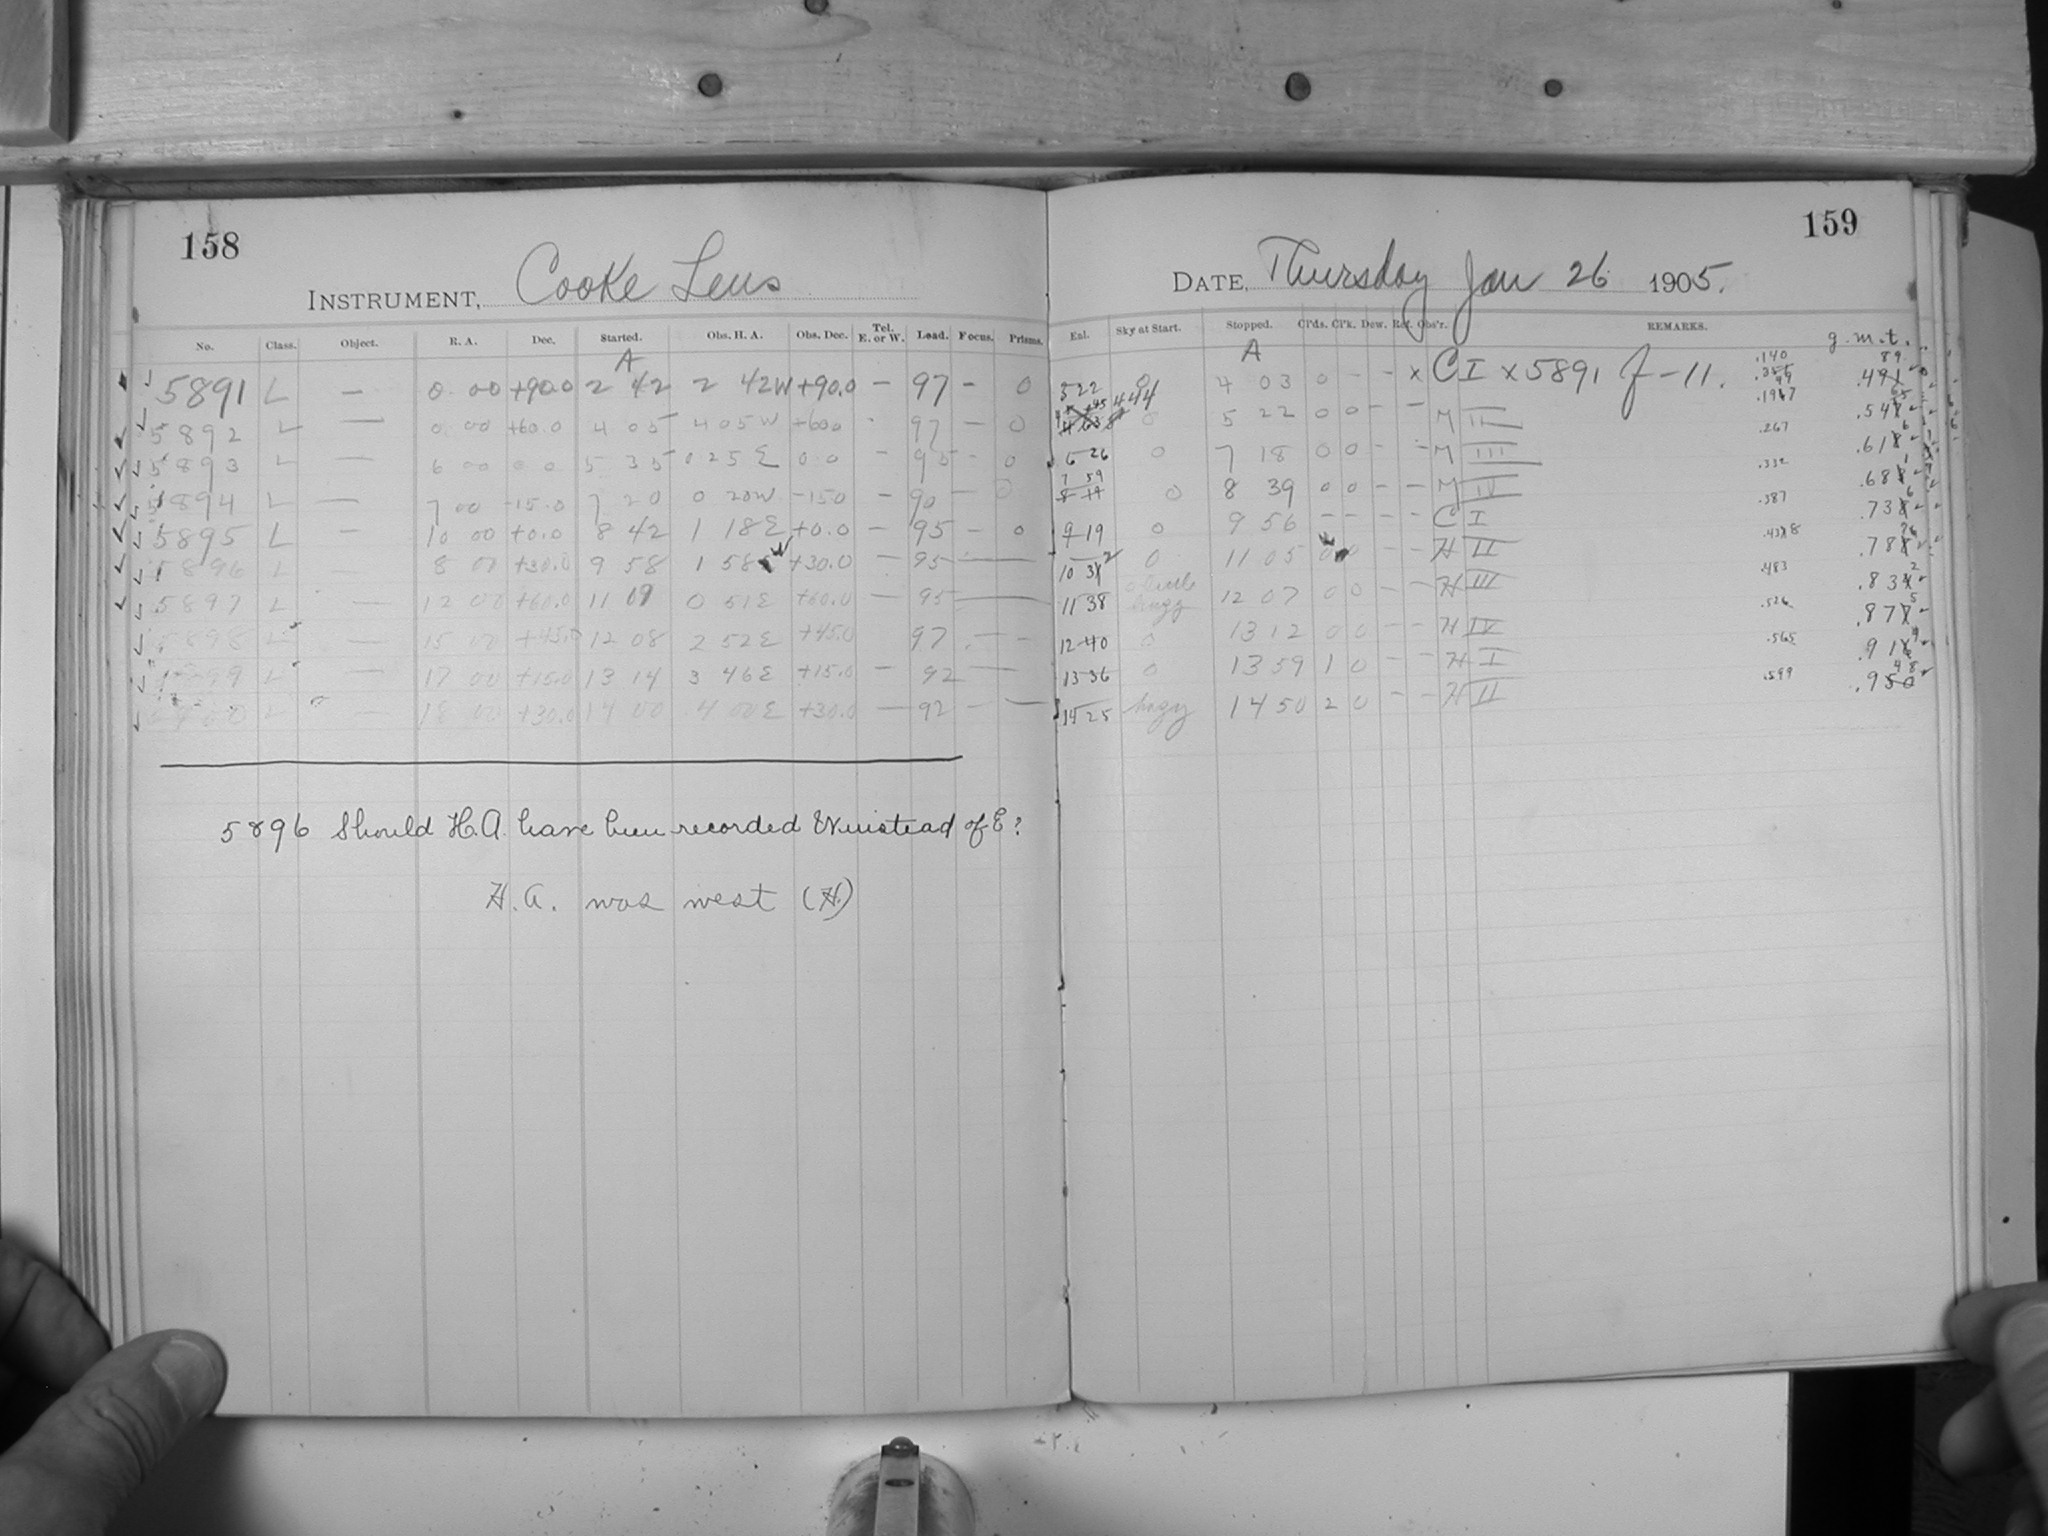 158
159
INSTRUMENT, Cooke Lens
DATE, Thursday Jan 26 1905.
No. Class. Object. R. A. Dec. Started. Obs. H. A. Obs. Dec. Tel. E. or W. Load. Focus. Prisms. Enl. Sky at Start. Stopped. Cl'ds. Cl'k. Dew. Ref. Obs'r. REMARKS. g.m.t.
A A
5891 L — 0 00 +90.0 2 42 2 42W +90.0 — 97 - 0 322 0 4 03 0 - - x C I x 5891 J-11.
5892 L — 0 00 +60.0 4 05 4 05W +60.0 - 97 - 0 444 0 5 22 0 0 - - M II .267
5893 L — 6 00 0 0 5 35 0 25E 0.0 - 95 - 0 6 26 0 7 18 0 0 - - M III .332
5894 L — 7 00 -15.0 7 20 0 20W -15.0 - 90 - 0 7 59 0 8 39 0 0 - - M IV .387
5895 L — 10 00 +0.0 8 42 1 18E +0.0 — 95 - 0 9 19 0 9 56 - - - - C I
5896 L 8 00 +30.0 9 58 1 58 W +30.0 — 95 — 10 32 0 11 05 0 0 - - H II .483
5897 L — 12 00 +60.0 11 09 0 51E +60.0 — 95 — 11 38 a little hazy 12 07 0 0 - - H III .526
5898 L 15 00 +45.0 12 08 2 52E +45.0 97 - - 12 40 0 13 12 0 0 - - H IV .565
5899 L — 17 00 +15.0 13 14 3 46E +15.0 — 92 — 13 36 0 13 59 1 0 - - H I .599
5900 L 18 00 +30.0 14 00 4 00E +30.0 — 92 - — 14 25 hazy 14 50 2 0 - - H II
5896 Should H.A. have been recorded W instead of E?
H.A. was west (H)